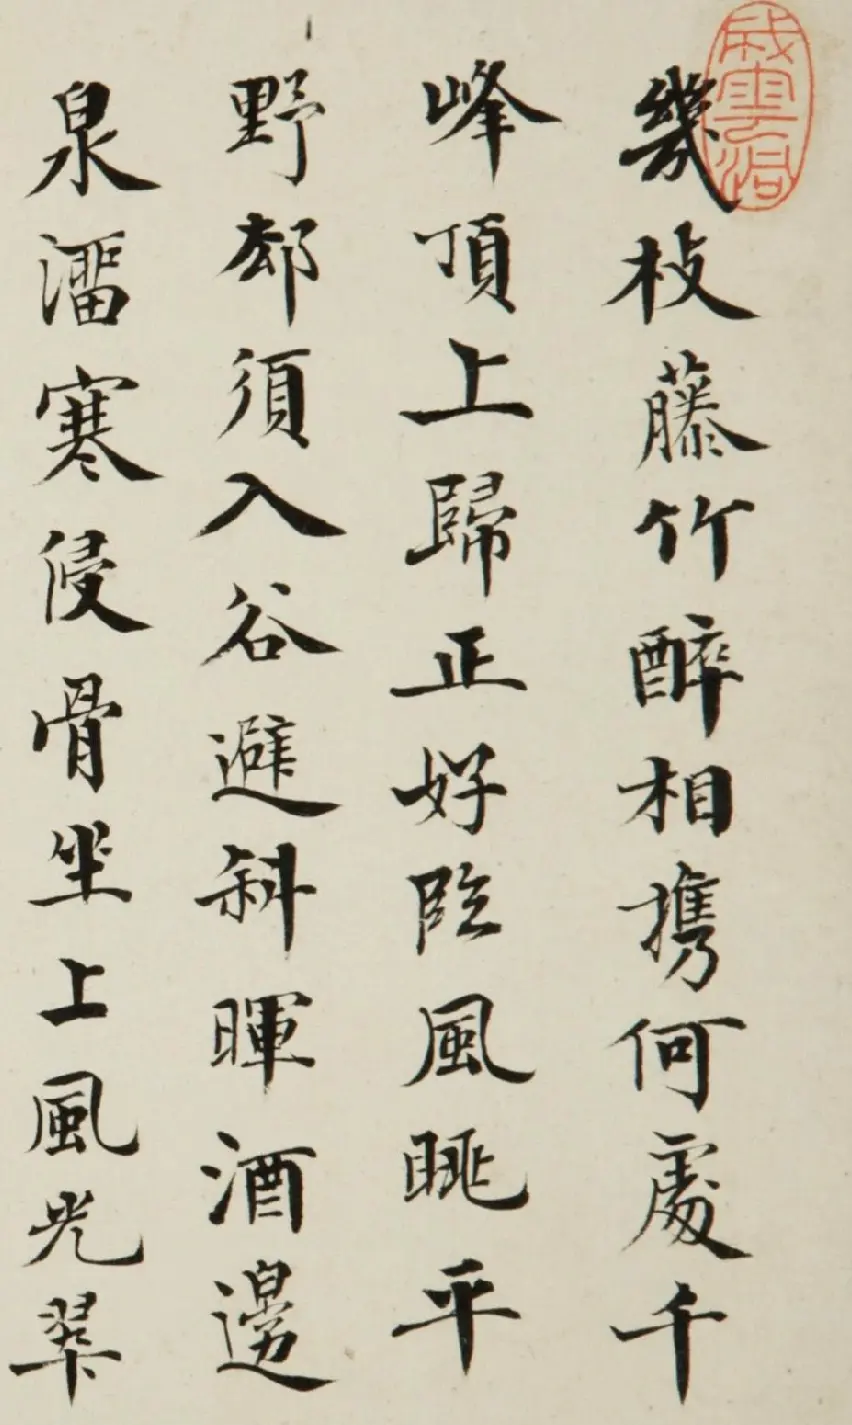 幾枝藤竹醉相攜何處千
峰頂上歸正好臨風眺平
野却須入谷避斜暉酒邊
泉溜寒侵骨坐上風光翠